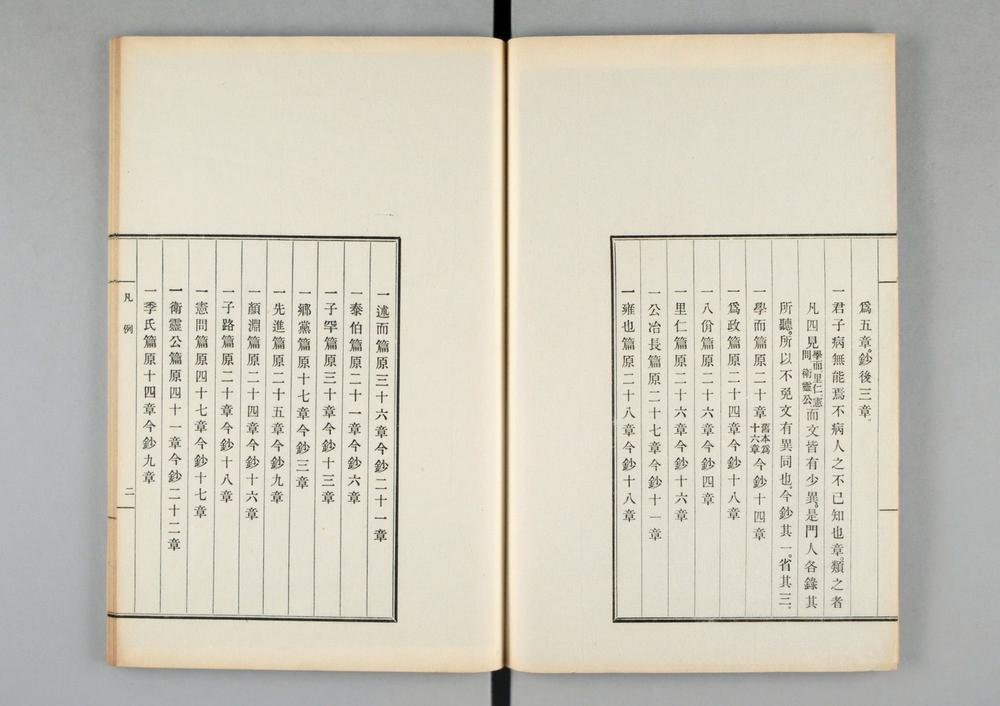 爲五章。鈔後三章。
一君子病無能焉不病人之不已知也章。類之者
凡四見學而里仁憲問衛靈公而文皆有少異。是門人各錄其
所聽。所以不免文有異同也。今鈔其一。省其三。
一學而篇原二十章舊本爲十六章今鈔十四章
一爲政篇原二十四章今鈔十八章
一八佾篇原二十六章今鈔四章
一里仁篇原二十六章今鈔十六章
一公冶長篇原二十七章今鈔十一章
一雍也篇原二十八章今鈔十八章
一述而篇原三十六章今鈔二十一章
一泰伯篇原二十一章今鈔六章
一子罕篇原三十章今鈔十三章
一鄉黨篇原十七章今鈔三章
一先進篇原二十五章今鈔九章
一顏淵篇原二十四章今鈔十六章
一子路篇原二十章今鈔十八章
一憲問篇原四十七章今鈔十七章
一衛靈公篇原四十一章今鈔二十二章
一季氏篇原十四章今鈔九章
凡例
二